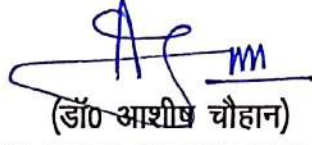 (डॉ0 आशीष चौहान)